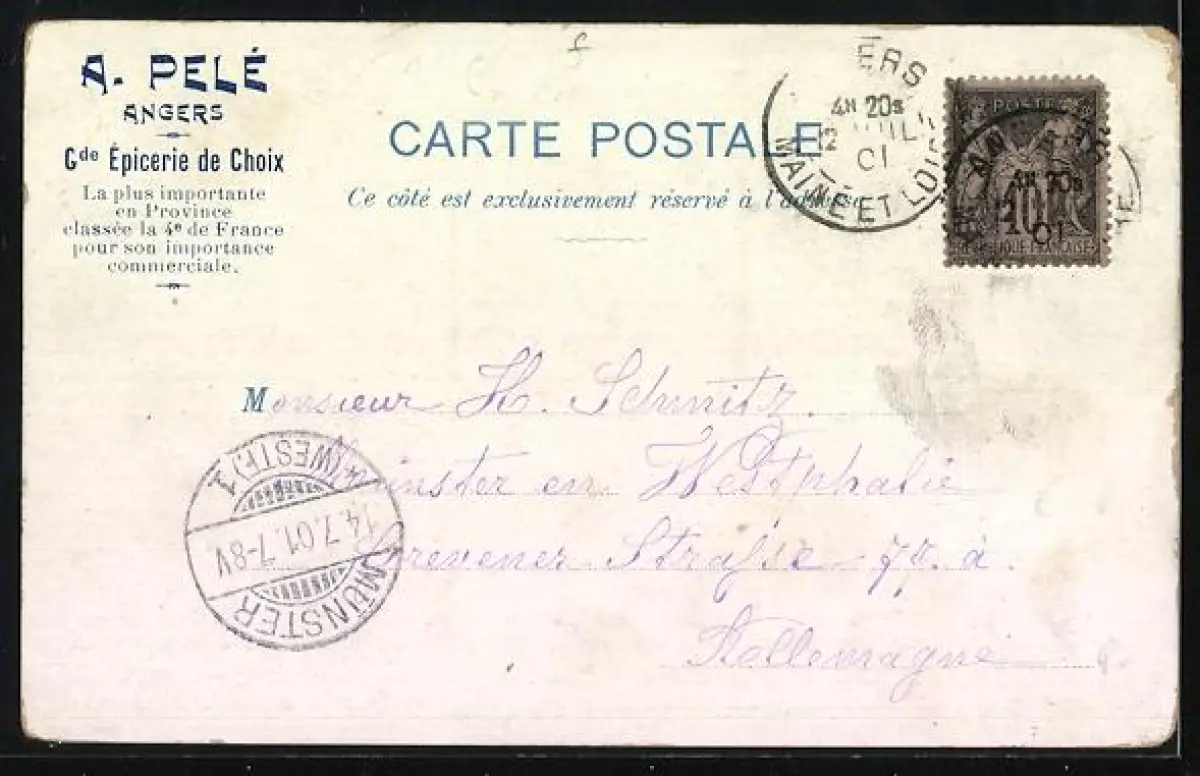 A. PELÉ
ANGERS
Gde Épicerie de Choix
La plus importante
en Province
classée la 4e de France
pour son importance
commerciale.
CARTE POSTALE
Ce côté est exclusivement réservé à l'adresse
ERS
4H 20S
12 JUIL
01
MAINE ET LOIRE
POSTE
10
RÉPUBLIQUE FRANÇAISE
4H 20S
12
01
Monsieur H. Schmitz.
Münster en Westphalie
Grevener Straſse 77. à
Allemagne
MÜNSTER
14.7.01.7-8V
(WESTF.) 1